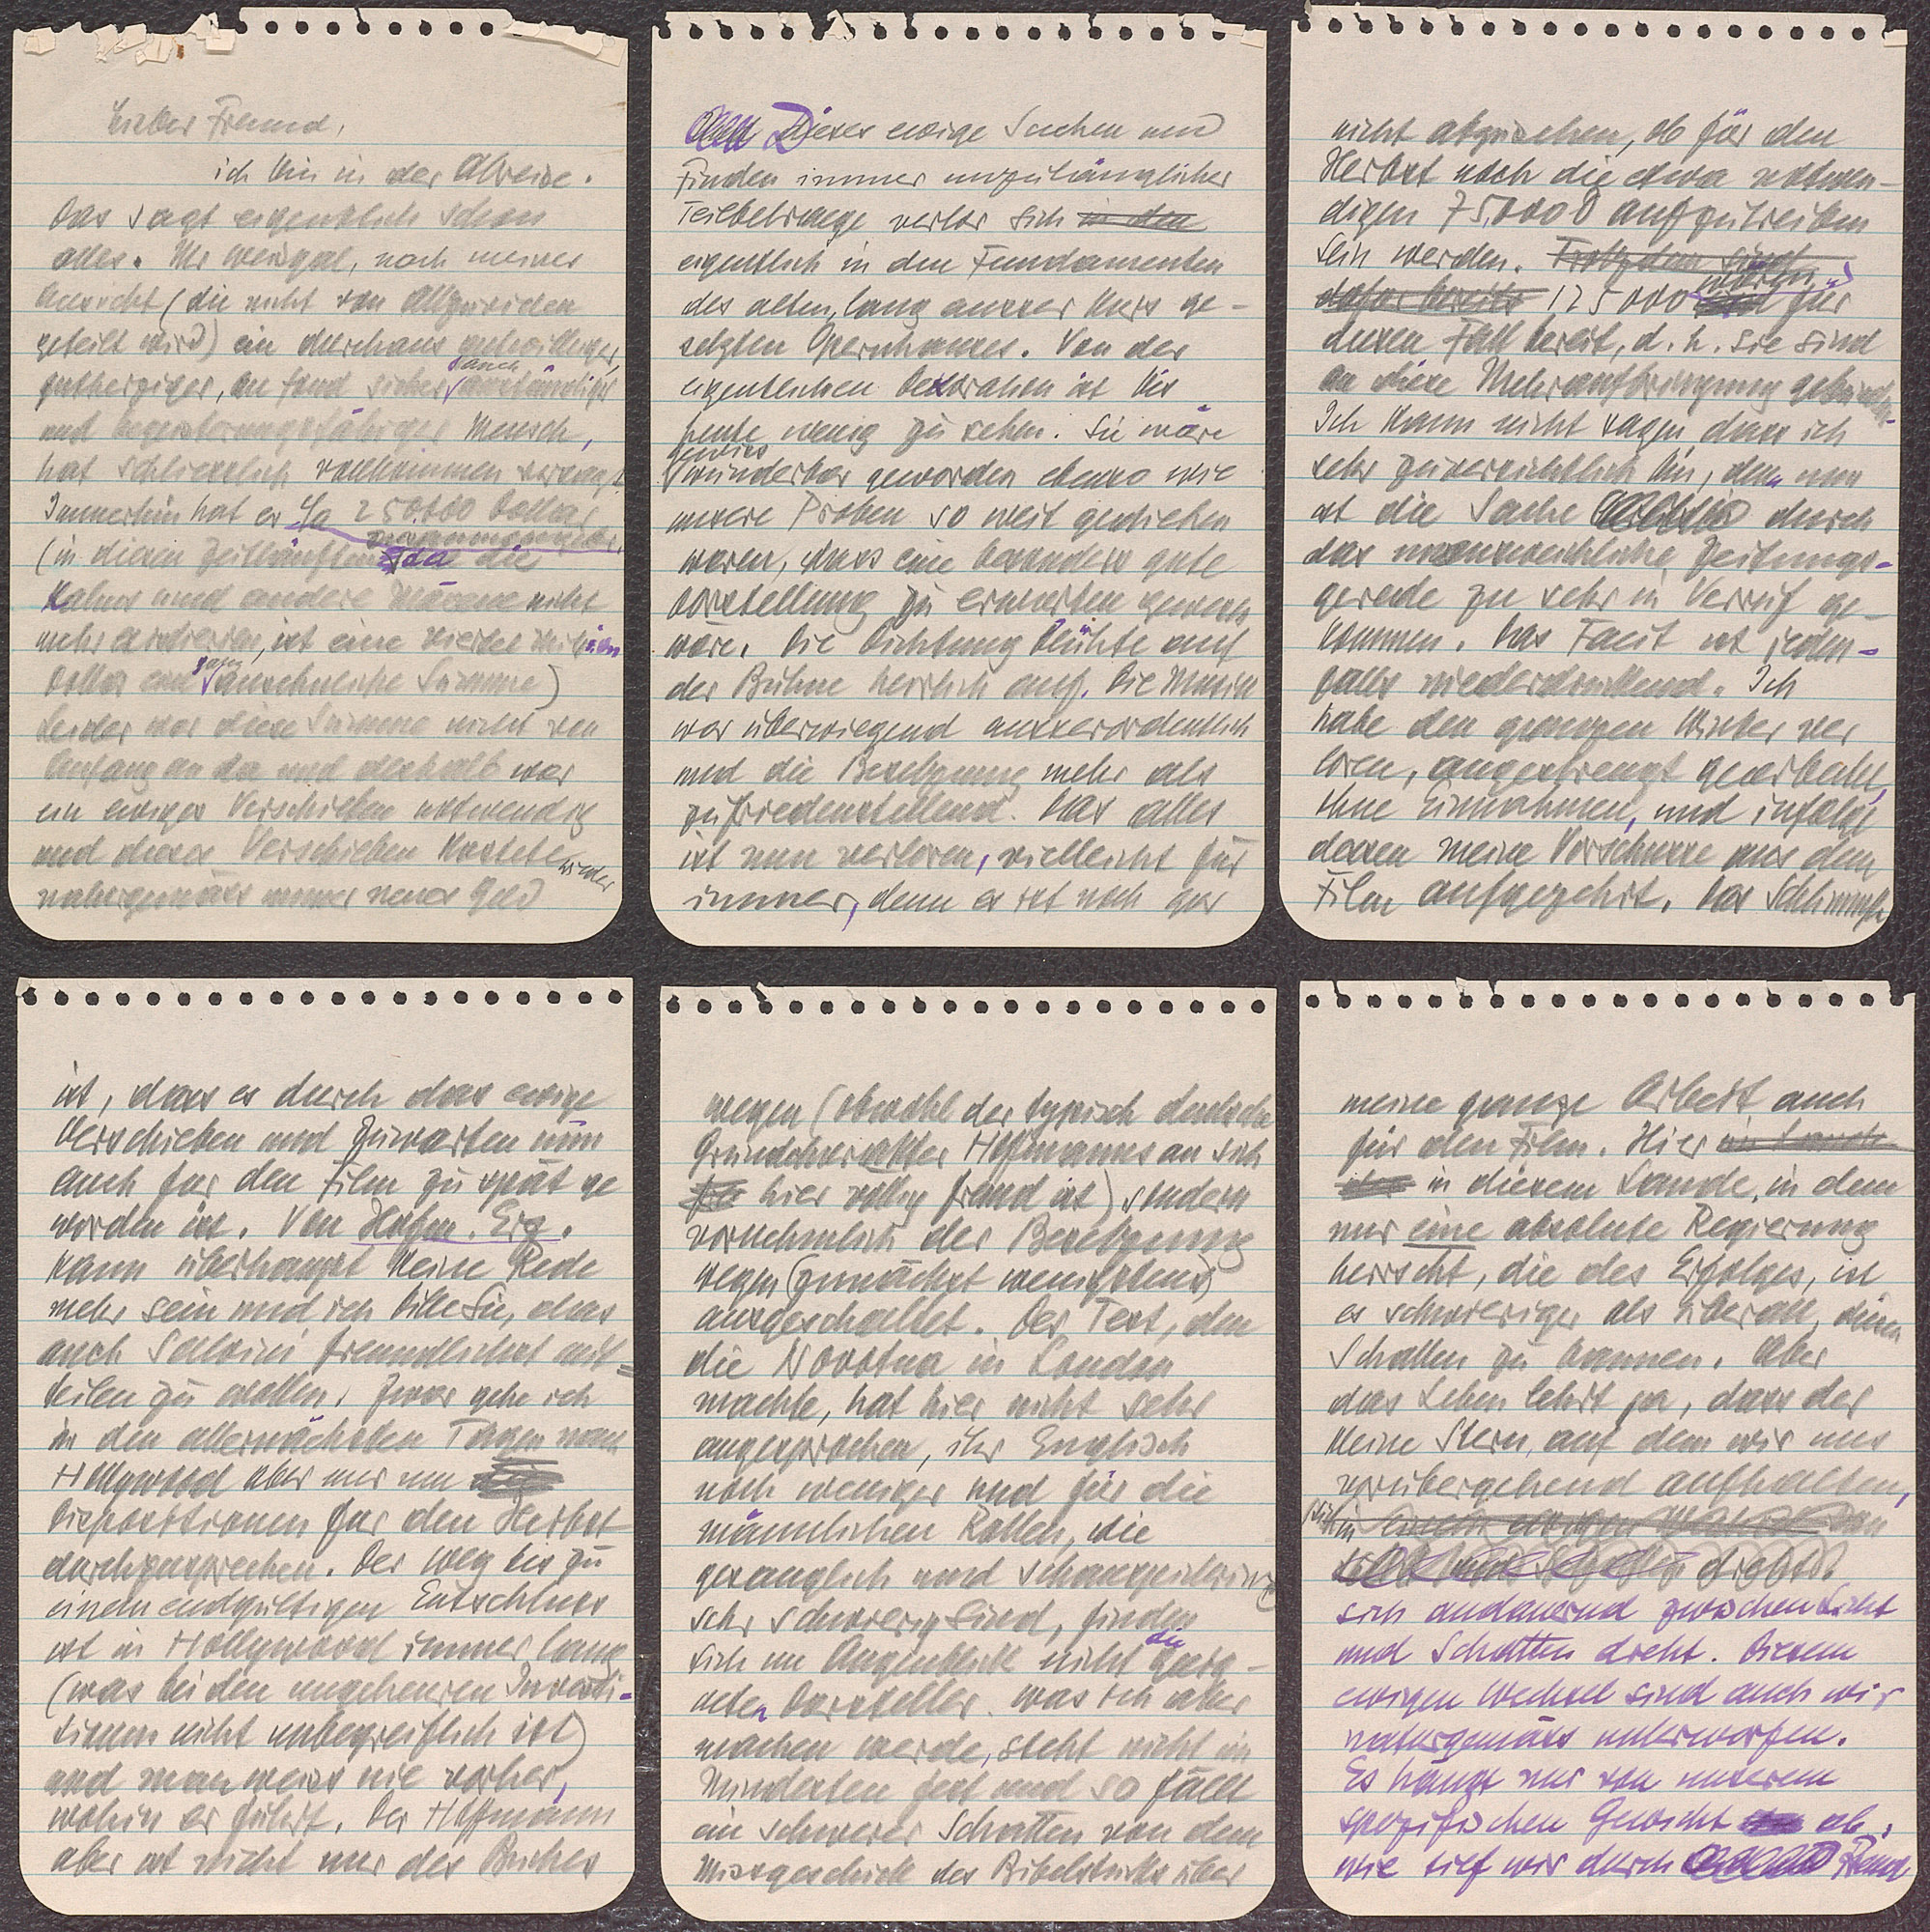 Lieber Freund,
ich bin in der Abreise.
Das sagt eigentlich schon
alles. Mr Weisgal, nach meiner
Ansicht (die nicht von Allzuvielen
geteilt wird) ein durchaus gutwilliger,
gutherziger, im Fond sicher auch anständiger
und begeisterungsfähiger Mensch,
hat schliesslich vollkommen versagt.
Immerhin hat er 250.000 Dollar
(in diesen Zeitläuften, da die
Kahns und andere Mäzene nicht
mehr existieren, ist eine viertel Million
Dollar eine ganz ansehnliche Summe)
Leider war diese Summe nicht von
Anfang an da und deshalb war
ein ewiges Verschieben notwendig
und dieses Verschieben kostete wieder
naturgemäss immer neues Geld
Dieses ewige Suchen und
Finden immer unzulänglicher
Teilbeträge verlor sich in den
eigentlich in den Fundamenten
des alten, lang ausser Kurs ge-
setzten Opernhauses. Von der
eigentlichen Dekoration ist bis
heute wenig zu sehen. Sie wäre
gewiss
wunderbar geworden ebenso wie
unsere Proben so weit gediehen
waren, dass eine besonders gute
Vorstellung zu erwarten gewesen
wäre. Die Dichtung blühte auf
der Bühne herrlich auf. Die Musik
war überwiegend ausserordentlich
und die Besetzung mehr als
zufriedenstellend. Das alles
ist nun verloren, vielleicht für
immer, denn es ist noch gar
nicht abzusehen, ob für den
Herbst noch die etwa notwen-
digen 75.000 D aufzutreiben
sein werden. Trotzdem sind
dafür bereits 125000 wären für
diesen Fall bereit, d.h. sie sind
an diese Mehraufbringung gebunden.
Ich kann nicht sagen dass ich
sehr zuversichtlich bin, denn nun
ist die Sache durch
das unausweichliche Zeitungs-
gerede zu sehr in Verruf ge-
kommen. Das Facit ist jeden-
falls niederdrückend. Ich
habe den ganzen Winter ver
loren, angestrengt gearbeitet,
ohne Einnahmen, und infolge
dessen meine Vorschüsse aus dem
Film aufgezehrt. Das Schlimmste
ist, dass es durch das ewige
Verschieben und Zuwarten nun
auch für den Film zu spät ge
worden ist. Von Hofm. Erz.
kann überhaupt keine Rede
mehr sein und ich bitte Sie, das
auch Salvini freundlichst mit=
teilen zu wollen. Zwar gehe ich
in den allernächsten Tagen nach
Hollywood aber nur um
Dispositionen für den Herbst
durchzusprechen. Der Weg bis zu
einem endgültigen Entschluss
ist in Hollywood immer lang
(was bei den ungeheuren Investi-
tionen nicht unbegreiflich ist)
und man weiss nie vorher,
wohin er führt. Der Hoffmann
aber ist nicht nur des Buches
wegen (obwohl der typisch deutsche
Grundcharakter Hoffmanns an sich
hier völlig fremd ist) sondern
vornehmlich der Besetzung
wegen (zunächst wenigstens)
ausgeschaltet. Der Test, den
die Novotna in London
machte, hat hier nicht sehr
angesprochen, ihr Englisch
noch weniger und für die
männlichen Rollen, die
gesanglich und schauspielerisch
sehr schwierig sind, finden
sich im Augenblick nicht die geeig-
neten Darsteller. Was ich aber
machen werde, steht nicht im
Mindesten fest und so fällt
ein schwerer Schatten von dem
Missgeschick des Bibelstücks über
meine ganze Arbeit auch
für den Film. Hier im Lande
in diesem Lande, in dem
nur eine absolute Regierung
herrscht, die des Erfolges, ist
es schwieriger als überall, diesen
Schatten zu bannen. Aber
das Leben lehrt ja, dass der
kleine Stern, auf dem wir uns
vorübergehend aufhalten,
sich in einem ewigen Wechsel von
Licht und Schatten dreht.
sich andauernd zwischen Licht
und Schatten dreht. Diesem
ewigen Wechsel sind auch wir
naturgemäss unterworfen.
Es hängt nur von unserem
spezifischen Gewicht ab,
wie tief wir durch